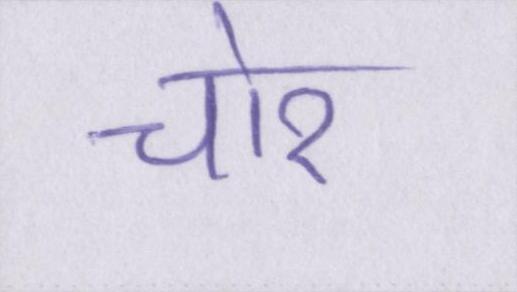 चोर